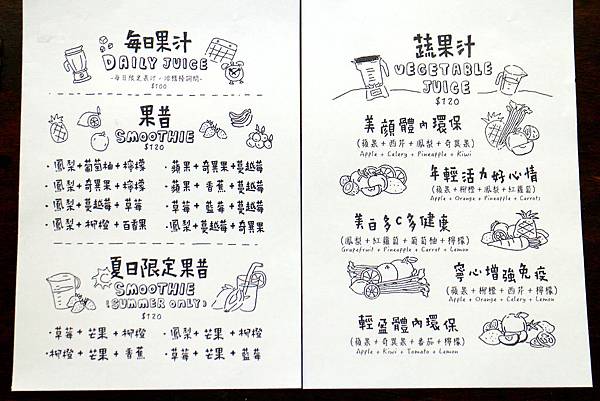 每日果汁
DAILY JUICE
-每日限定果汁，詳情請詢問-
$100
果昔
SMOOTHIE
$120
·鳳梨+葡萄柚+檸檬
·蘋果+奇異果+蔓越莓
·鳳梨+奇異果+檸檬
·蘋果+香蕉+蔓越莓
·鳳梨+蔓越莓+草莓
·草莓+藍莓+蔓越莓
·鳳梨+柳橙+百香果
·鳳梨+蔓越莓+奇異果
夏日限定果昔
SMOOTHIE
(SUMMER ONLY)
$120
·草莓+芒果+柳橙
·鳳梨+芒果+柳橙
·柳橙+芒果+香蕉
·草莓+芒果+藍莓
蔬果汁
VEGETABLE
JUICE
$120
美顏體內環保
(蘋果+西芹+鳳梨+奇異果)
Apple + Celery + Pineapple + Kiwi
年輕活力好心情
(蘋果+柳橙+鳳梨+紅蘿蔔)
Apple + Orange + Pineapple + Carrots
美白多C多健康
(鳳梨+紅蘿蔔+葡萄柚+檸檬)
Grapefruit + Pineapple + Carrot + Lemon
寧心增強免疫
(蘋果+柳橙+西芹+檸檬)
Apple + Orange + Celery + Lemon
輕盈體內環保
(蘋果+奇異果+番茄+檸檬)
Apple + Kiwi + Tomato + Lemon